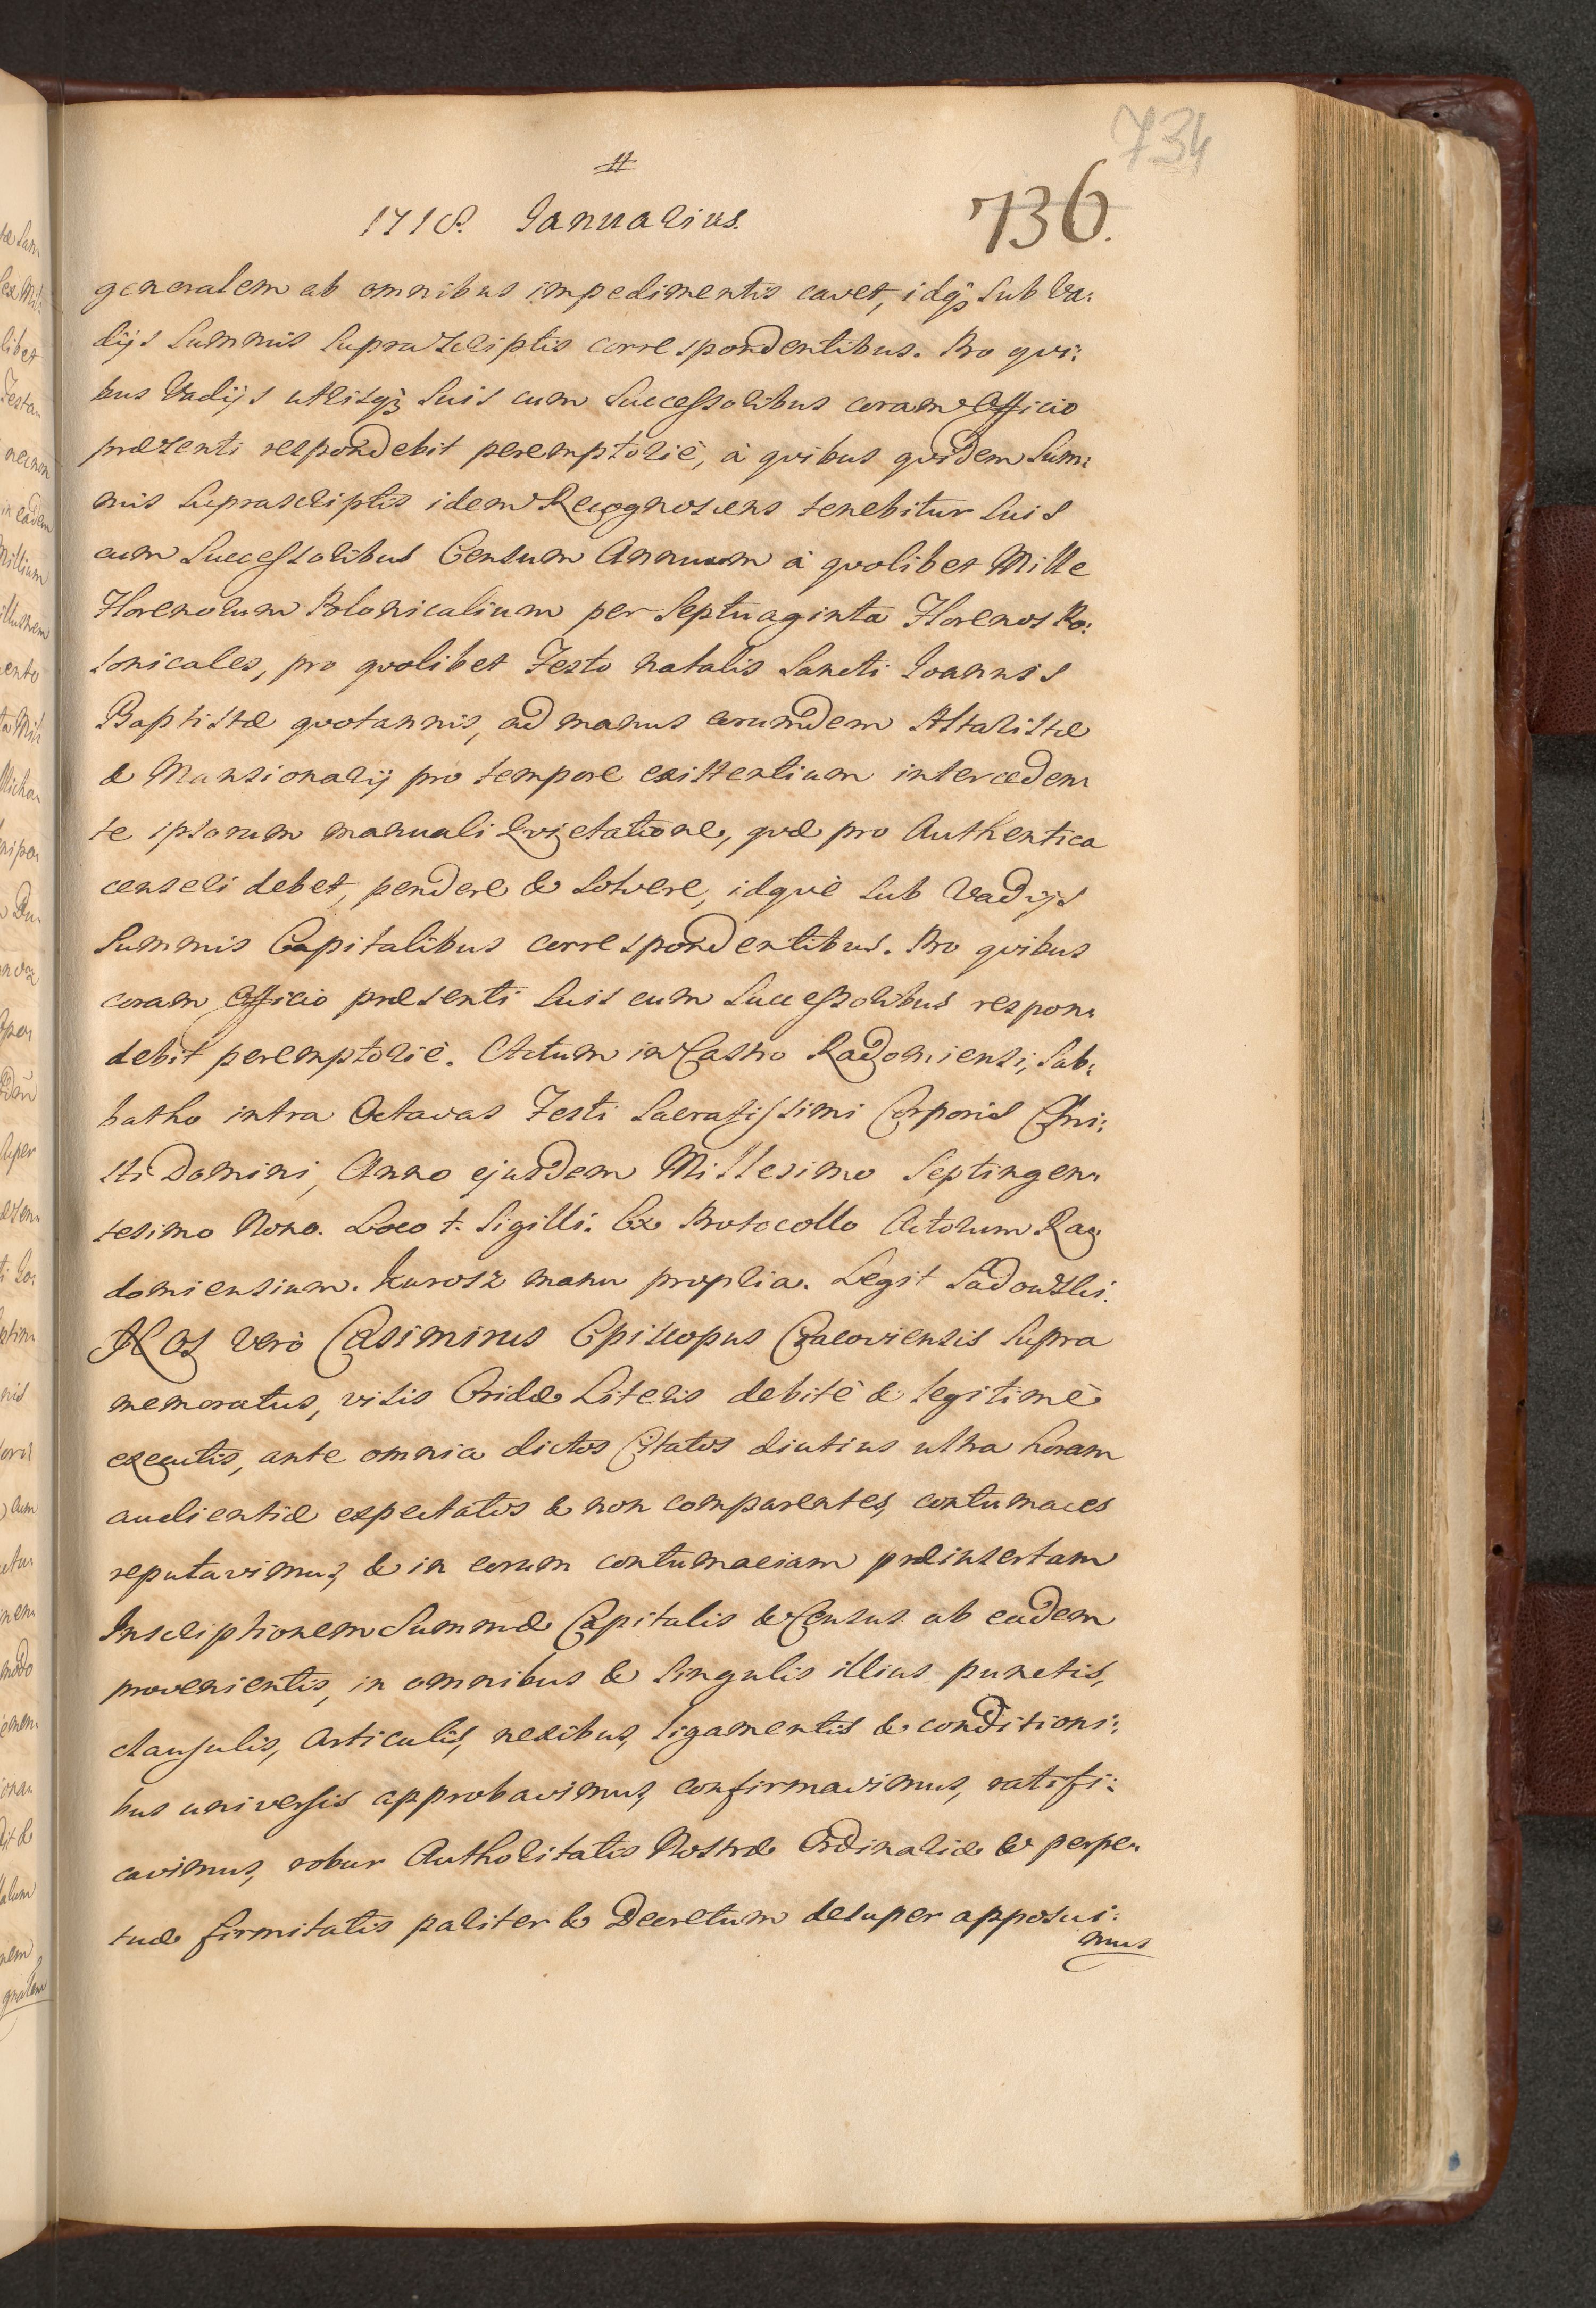 734
#
1718. Ianuarius.
736.
generalem ab omnibus impedimentis cavet, idq3 sub Va:
dijs summis suprascriptis correspondentibus. Pro qvi:
bus Vadijs utrisq3 suis cum successoribus coram Officio
præsenti respondebit peremptoriè, à qvibus qvidem sum:
mis suprascriptis idem Recognoscens tenebitur suis
cum successoribus Censum Annuum à qvolibet Mille
Florenorum Polonicalium per septuaginta Florenos Po:
lonicales, pro qvolibet Festo natalis Sancti Ioannis
Baptistæ qvotannis, ad manus eorumdem Altaristæ
& Mansionarij pro tempore existentium interceden:
te ipsorum manuali Qvietatione, qvæ pro Authentica
censeri debet, pendere & solvere, idqvè sub Vadijs
summis Capitalibus correspondentibus. Pro qvibus
coram Officio præsenti suis cum successoribus respon:
debit peremptoriè. Actum in Castro Radomiensi, Sab:
batho intra Octavas Festi Sacratissimi Corporis Chri:
sti Domini, Anno ejusdem Millesimo Septingen:
tesimo Nono. Loco †. Sigilli. Ex Protocollo Actorum Ra:
domiensium. Kurosz manu propria. Legit Sadowski.
Nos verò Casimirus Episcopus Cracoviensis supra
memoratus, visis Cridæ Literis debitè & legitimè
executis, ante omnia dictos Citatos diutius ultra horam
audientiæ expectatos & non comparentes, contumaces
reputavimus, & in eorum contumaciam præinsertam
Inscriptionem Summæ Capitalis & Census ab eadem
provenientis, in omnibus & singulis illius punctis,
clausulis, Articulis, nexibus, ligamentis & conditioni:
bus universis approbavimus, confirmavimus, ratifi:
cavimus, robur Authoritatis Nostræ Ordinariæ & perpe:
tuæ firmitatis pariter & Decretum desuper apposui:
mus